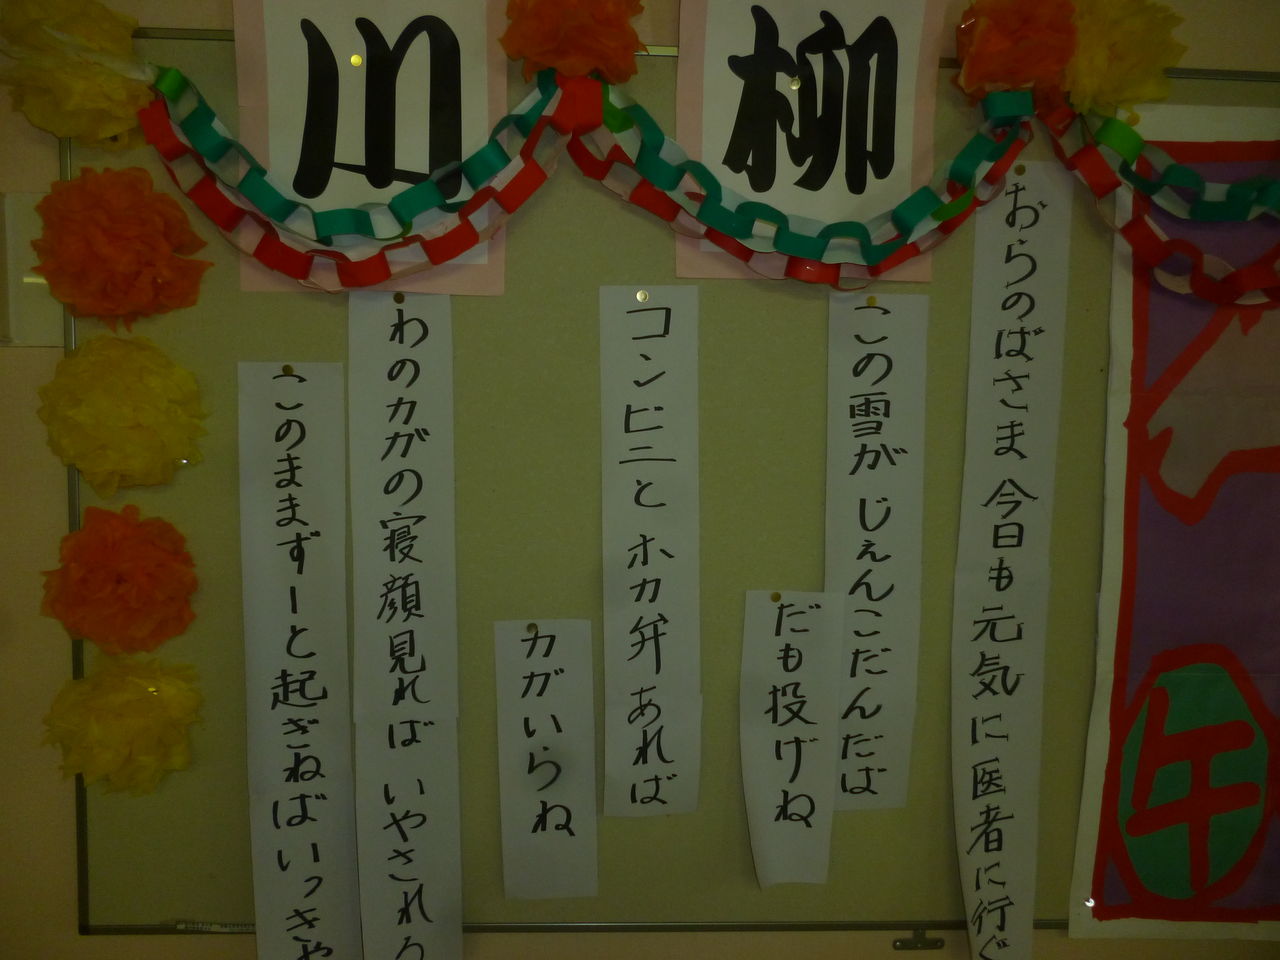 川柳
おらのばさま 今日も元気に医者に行ぐ
この雪が じぇんこだんだば
だも投げね
コンビニと ホカ弁あれば
カガいらね
わのカガの寝顔見れば いやされる
このままずーと起ぎねばいっきゃ
午